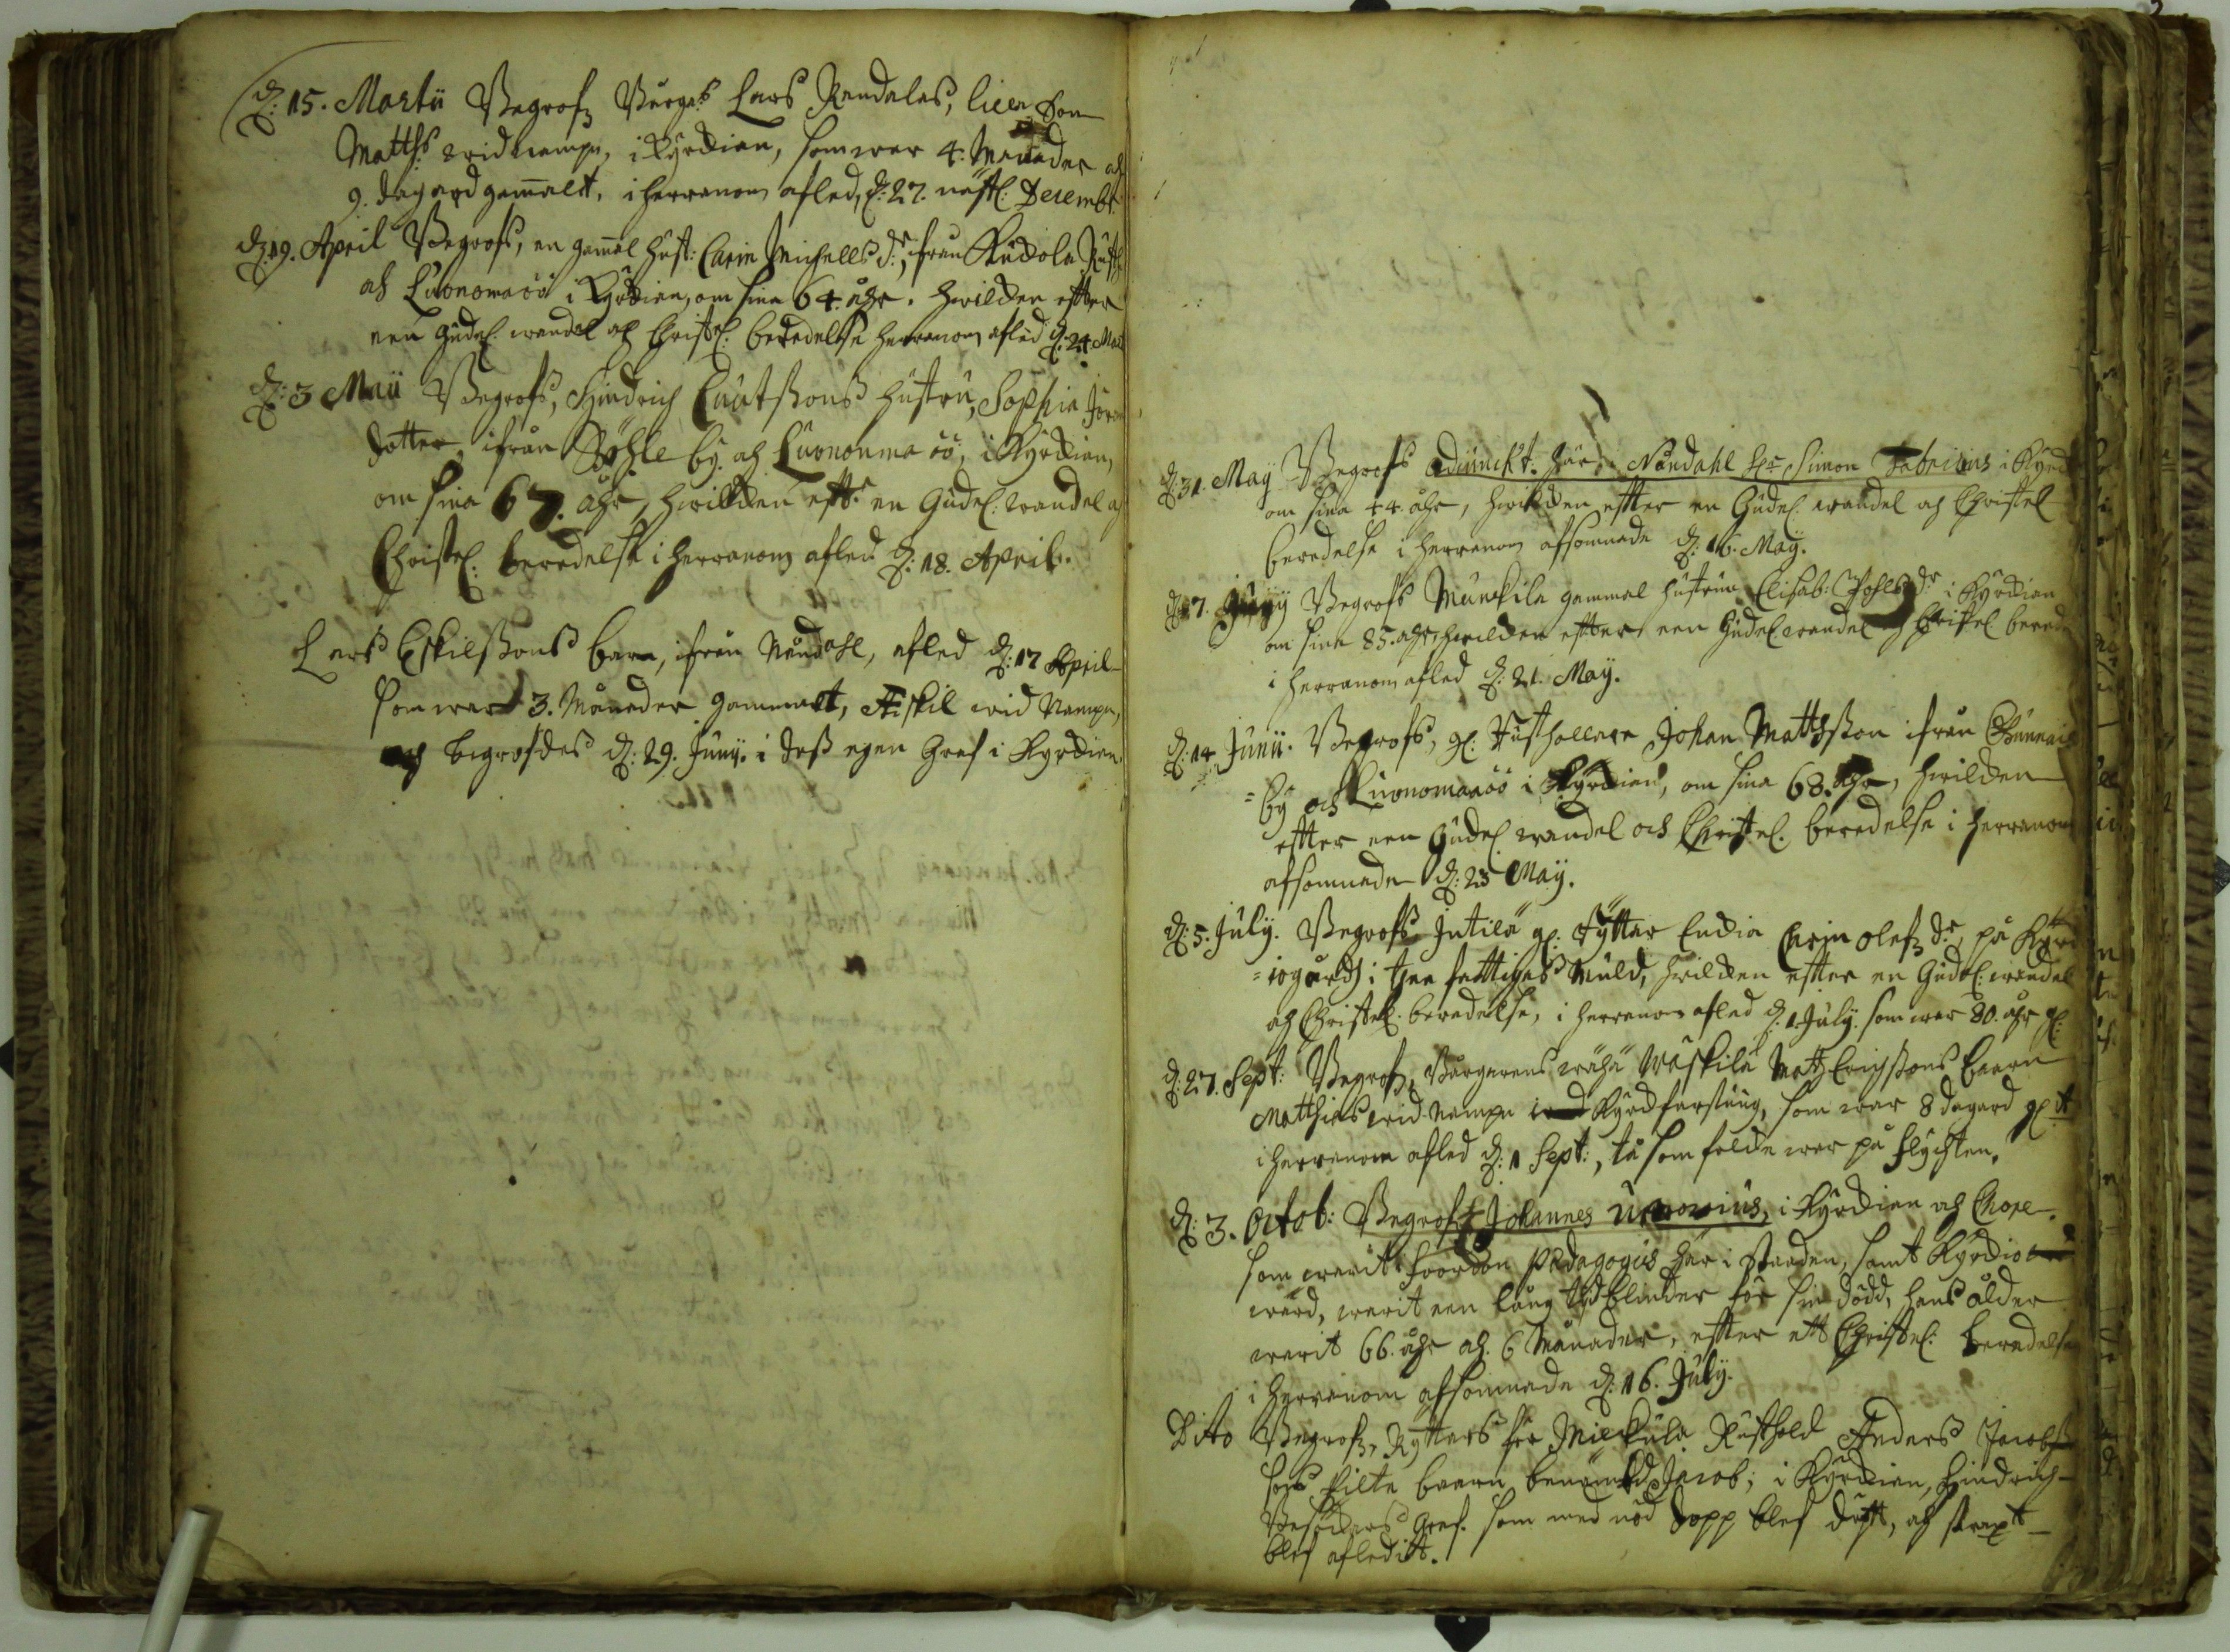 d: 15. Martii Begrofz Burges Lars Randalas, lilla Son
Matths wid nampn, i Kyrckian, som war 4. Månader och
9. dagard gammalt, i herranom afled, d: 27. nästl: Decembr.
d: 19. April Begrofs, en gammal hust: Carin Michells dr, ifrån Kuckola Rusth
och Luonomaöö i Kyrckian, om sina 64. åhr. hwilcken effter
een Gudel: wandel och Christel: beredelse herranom afled d: 24 Mart
d: 3 Maii Begrofs, Hindrich Knutssons hustru, Sophia Jören
dotter, ifrån Böhle by och Luononmaöö, i Kyrckian,
om sina 67. åhr, hwilcken efftr en Gudel: wandel och
Christel: beredelse i herranom afled d: 18. April.
Lars Eskilssons barn, ifrån Nåndahl, afled d: 17 April
som war 3. Månader gammalt, Eskil wid Nampn,
och begrofdes d: 29. Junij. i dess egen Graf i Kyrckian.
d: 31. Maij Begrofs Adiunckt. här i Nåndahl Hr Simon Fabricius i Kyrck
om sina 44. åhr, hwilcken effter en Gudel: wandel och Christel
beredelse i herranom afsomnade d: 16. Maij.
d: 7. Junij Begrofs Munckila gammal hustrun Elisab: Pohls dr i Kyrckian
om sina 85. åhr, hwilcken effter een Gudel: wandel och Christel bered
i herranom afled d: 21. Maij.
d: 14 Junii. Begrofs, gl: Rusthollare Johan Mattsson ifrån
by och Luonomaaöö i Kyrckian, om sina 68. åhr, hwilcken
effter een Gudel: wandel och Christel. beredelse i herranom
afsomnade d: 23 Maij.
d: 5. Julij. Begrofs Intilä gl: Carin Olefz dr, på Kyrc
=iogård, i the fattigas Muld, hwilcken effter en Gudel: wandel
och Christel. beredelse, i herranom afled d: 1. Julij. som war 80. åhr gl:
d: 27. Sept: Begrofz, Burgarens wähä Wäskilä Matz Erichssons baarn
Matthias wid Nampn Kyrckfarstuug, som war 8 dagard gl: it
i herranom afled d: 1 Sept:, tå som folcke war på flychten.
d: 3. Octob: Begrofz Johannes i Kyrckian och Chore.
som warit fordom Pædagogus här i Staden, samt Kyrckio
wärd, warit een lång tid blinder för sin dödd, hans ålder
warit 66. åhr och 6 Månader, effter ett Christel: beredelse
i herranom afsomnade d: 16. Julij.
Dito Begrofz, Ryttars för Mickula Rusthold Anders Jacobs
sons Pilte baarn benämbd Jacob; i Kyrckian, Hindrich
Graf. som med nöd dopp blef döpt, och straxt
blef afledit.